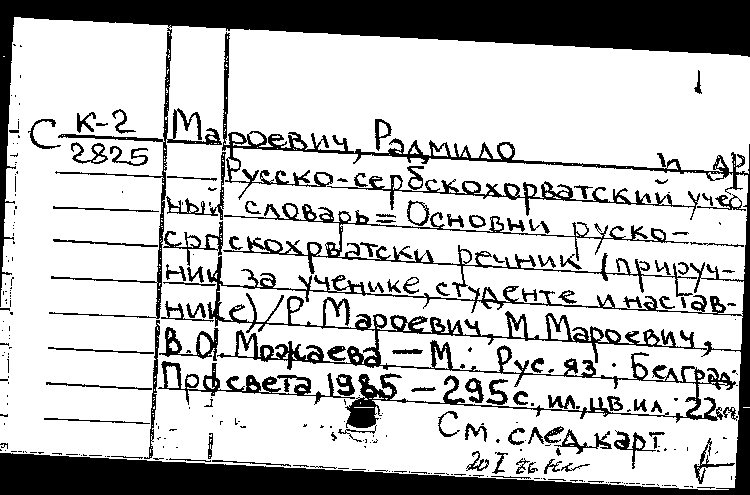 С К-2
2825
Мароевич, Радмило
и др
Русско-сербскохорватский учеб
ный словарь = Основни руско-
српскохрватски речник (прируч-
ник за ученике, студенте и настав-
нике)/Р. Мароевич, М. Мароевич,
В.О. Можаева. — М.: Рус. яз.; Белград:
Просвета, 1985. — 295 с., ил., цв. ил.; 22 см.
См. след. карт
20 I 86